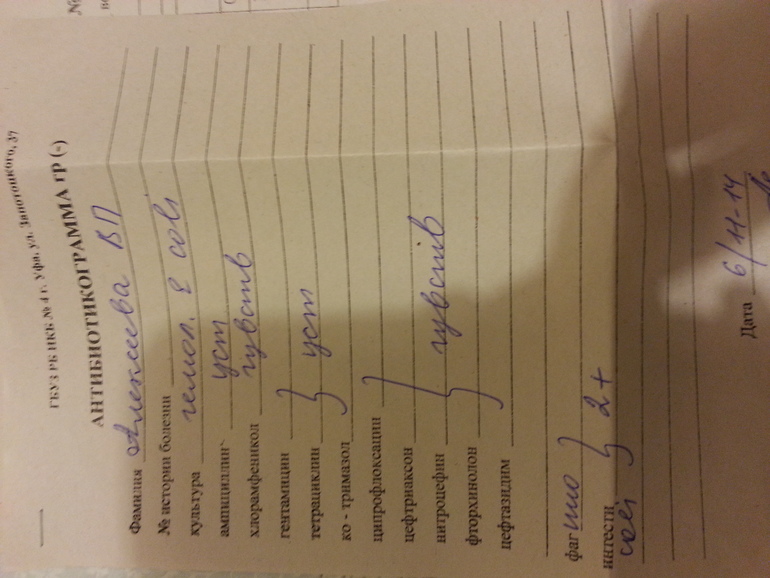 ГБУЗ РБ ИКБ № 4 г. Уфа, ул. Запотоцкого, 37
АНТИБИОТИКОГРАММА гр (-)
Фамилия Алексеева ВП
№ истории болезни
культура гемол. E coli
ампициллин уст
хлорамфеникол чувств
гентамицин
тетрациклин } уст
ко - тримазол
ципрофлоксацин
цефтриаксон
нитроцефин } чувств
фторхинолон
цефтазидим
фаг пио
интести } 2+
coli
Дата 6/11-14